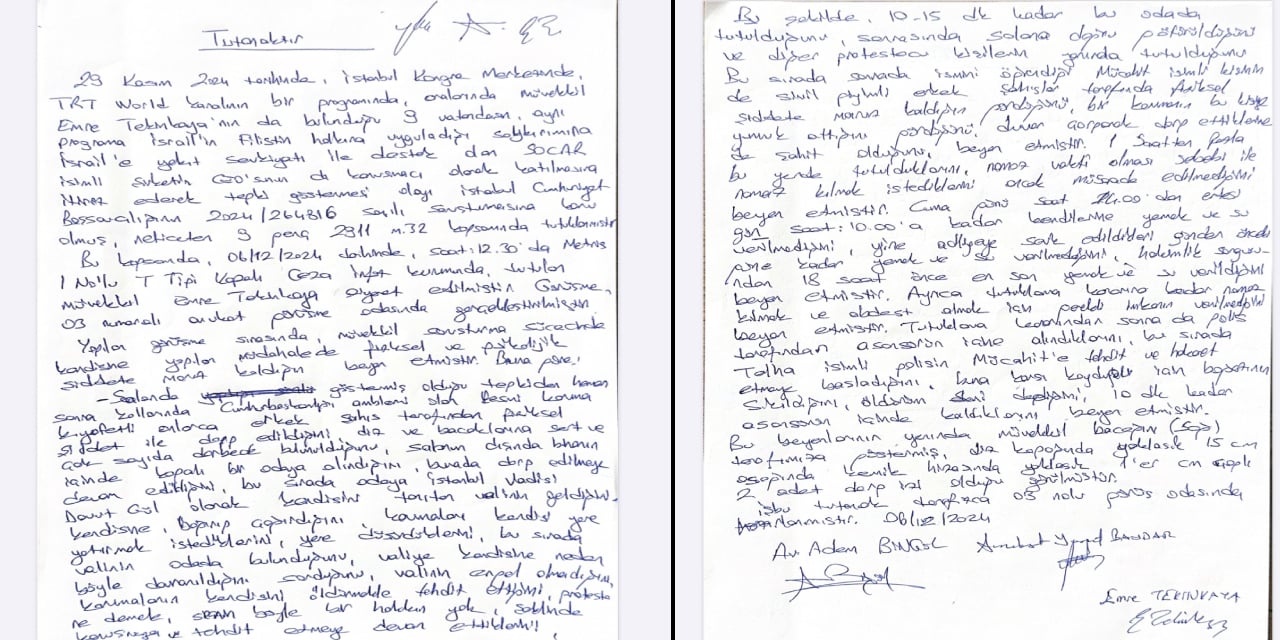 Tutanaktır
29 Kasım 2024 tarihinde, İstanbul Kongre Merkezinde,
TRT World kanalının bir programında, aralarında müvekkil
Emre Tekinkaya'nın da bulunduğu 9 vatandaşın, aynı
programa İsrail'in Filistin halkına uyguladığı soykırımına
İsrail'e yakıt sevkiyatı ile destek olan SOCAR
isimli şirketin CEO'sunun da konuşmacı olarak katılmasına
itiraz ederek tepki göstermesi olayı İstanbul Cumhuriyet
Başsavcılığının 2024/264816 sayılı soruşturmasına konu
olmuş, neticeten 9 genç 2911 m.32 kapsamında tutuklanmıştır
Bu kapsamda, 06/12/2024 tarihinde, saat: 12.30'da Metris
1 Nolu T Tipi Kapalı Ceza İnfaz kurumunda, tutulan
müvekkil Emre Tekinkaya ziyaret edilmiştir. Görüşme,
03 numaralı avukat görüşme odasında gerçekleştirilmiştir.
Yapılan görüşme sırasında, müvekkil soruşturma sürecinde
kendisine yapılan müdahalede fiziksel ve psikolojik
şiddete maruz kaldığını beyan etmiştir. Buna göre;
- Salonda göstermiş olduğu tepkiden hemen
sonra kollarında Cumhurbaşkanlığı amblemi olan resmi koruma
kıyafetli onlarca erkek şahıs tarafından fiziksel
şiddet ile darp edildiğini, diz ve bacaklarına sert ve
çok sayıda darbede bulunulduğunu, salonun dışında binanın
içinde kapalı bir odaya alındığını, burada darp edilmeye
devam edildiğini, bu sırada odaya İstanbul Valisi
Davut Gül olarak kendisini tanıtan valinin geldiğini,
kendisine, bağırıp çağırdığını korumaları kendisi yere
yatırmak istediklerini, yere düşürdüklerini, bu sırada
valinin odada bulunduğunu, valiye kendisine neden
böyle davranıldığını sorduğunu, valinin engel olmadığını,
korumaların kendisini öldürmekle tehdit ettiğini, protesto
ne demek, senin böyle bir hakkın yok, şeklinde
konuşmaya ve tehdit etmeye devam ettiklerini,
Bu şekilde, 10-15 dk kadar bu odada
tutulduğunu, sonrasında salona doğru götürüldüğünü
ve diğer protestocu kişilerin yanında tutulduğunu
Bu sırada sonrada ismini öğrendiği Mücahit isimli kişinin
de sivil giyimli erkek şahıslar tarafından fiziksel
şiddete maruz kaldığını gördüğünü, bir korumanın bu kişiye
yumruk attığını gördüğünü, duvara çarparak darp ettiklerine
de şahit olduğunu, beyan etmiştir. 1 saatten fazla
bu yerde tutulduklarını, namaz vakti olması sebebi ile
namaz kılmak istediklerini ancak müsaade edilmediğini
beyan etmiştir. Cuma günü saat 24.00'dan ertesi
gün saat: 10.00'a kadar kendilerine yemek ve su
verilmediğini, yine adliyeye sevk edildikleri günden önceki
güne kadar yemek ve su verilmediğini, hakimlik sorgusu-
ndan 18 saat önce en son yemek ve su verildiğini
beyan etmiştir. Ayrıca tutuklama kararına kadar namaz
kılmak ve abdest almak için gerekli imkanın verilmediğini
beyan etmiştir. Tutuklama kararından sonra da polis
tarafından asansörün içine alındıklarını, bu sırada
Talha isimli polisin Mücahit'e tehdit ve hakaret
etmeye başladığını, buna karşı koyduğu için boğazının
sıkıldığını, öldürürüm seni dediğini, 10 dk kadar
asansörün içinde kaldıklarını beyan etmiştir.
Bu beyanlarının yanında müvekkil bacağını (sağ)
tarafımıza göstermiş, diz kapağında yaklaşık 15 cm
aşağıda kemik hizasında yaklaşık 1'er cm çaplı
2 adet darp izi olduğu görülmüştür.
İşbu tutanak tarafımızca 03 nolu görüş odasında
hazırlanmıştır. 06/12/2024
Av. Adem BİNGÖL Avukat Yusuf BAHDAR
Emre TEKINKAYA